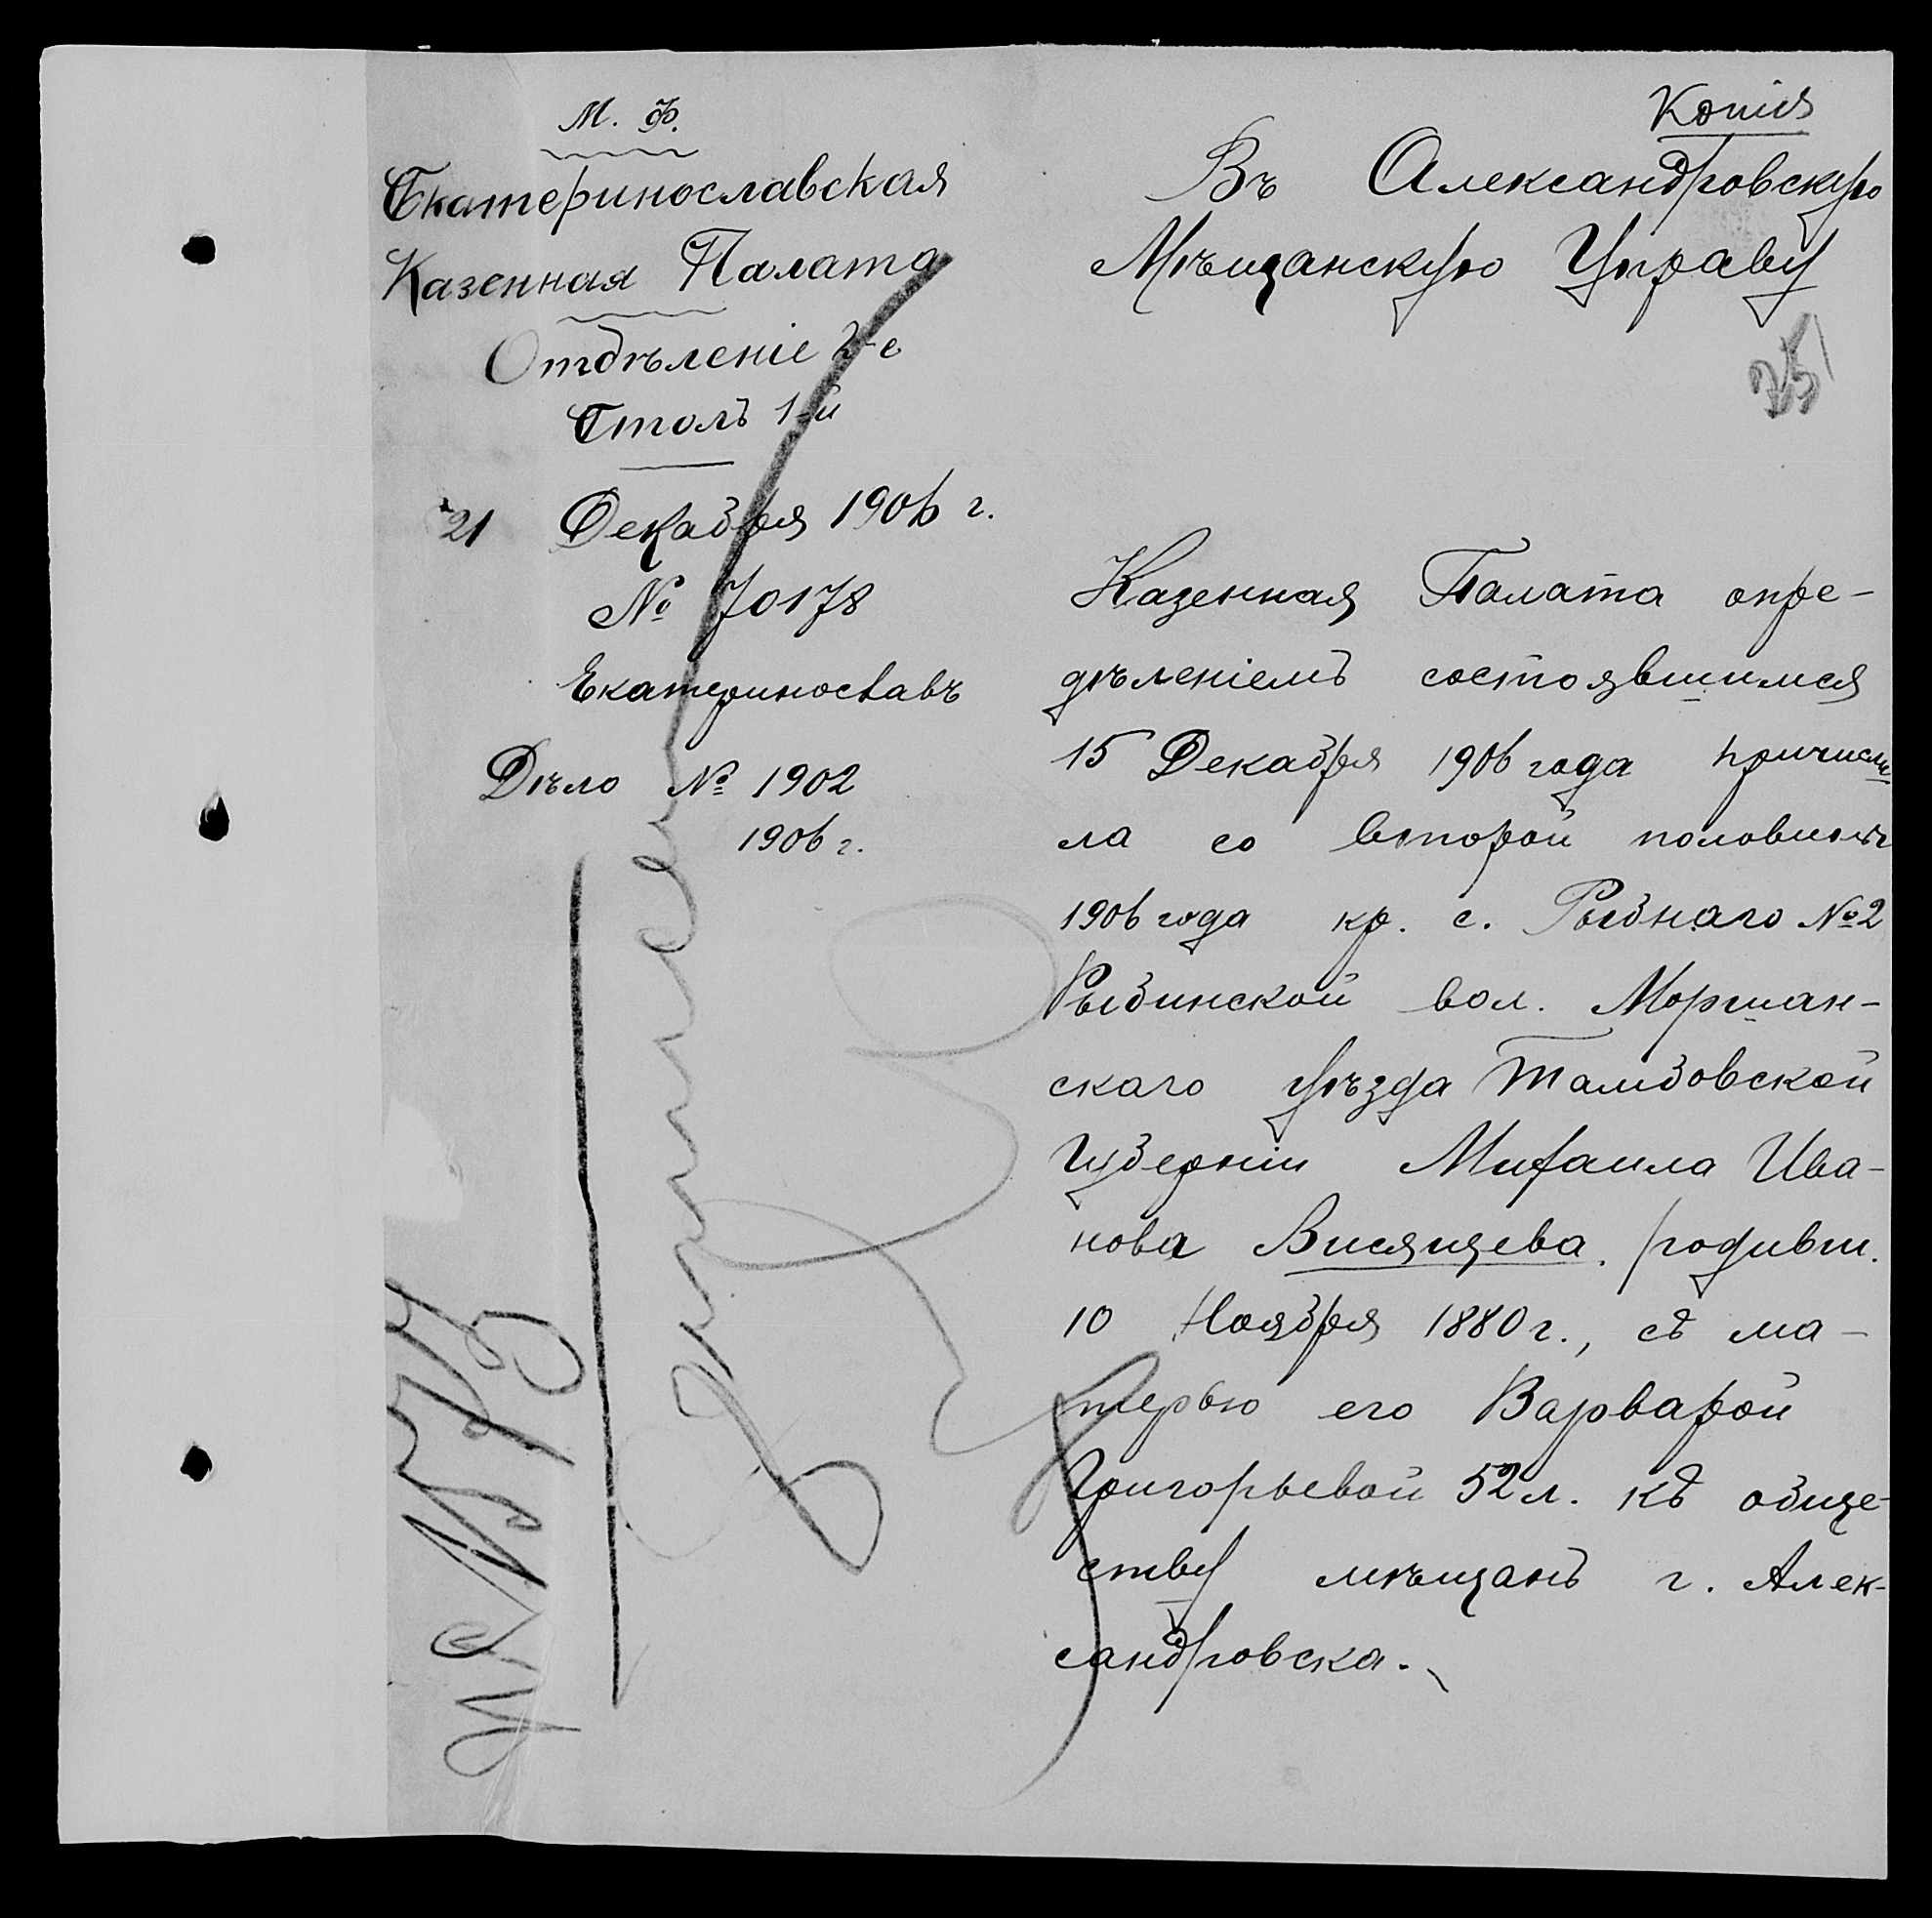 Копія
М. Ф.
Екатеринославская
Казенная Палата
Отдѣленіе 2-е
Столъ 1-й
21 Декабря 1906 г.
№ 70178
Екатеринославъ
Дѣло № 1902
1906 г.
Въ Александровскую
Мѣщанскую Управу
Казенная Палата опре-
дѣленіемъ состоявшимся
15 Декабря 1906 года причисли
ла со второй половины
1906 года кр. с. Рыбнаго № 2
Рыбинской вол. Моршан-
скаго уѣзда Тамбовской
Губерніи Михаила Ива-
нова Висящева, родивш.
10 Ноября 1880 г., съ ма-
терью его Варварой
Григорьевой 52 л. къ обще-
ству мѣщанъ г. Алек-
сандровска.